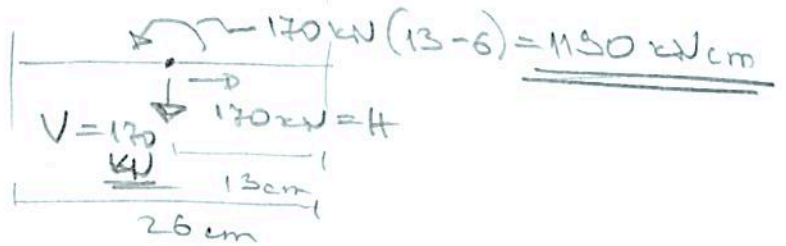 170 kN (13-6) = 1190 kNcm
V = 170 kN
170 kN = H
13cm
26 cm